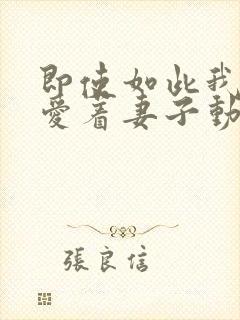 即使如此我
愛着妻子動
張良信